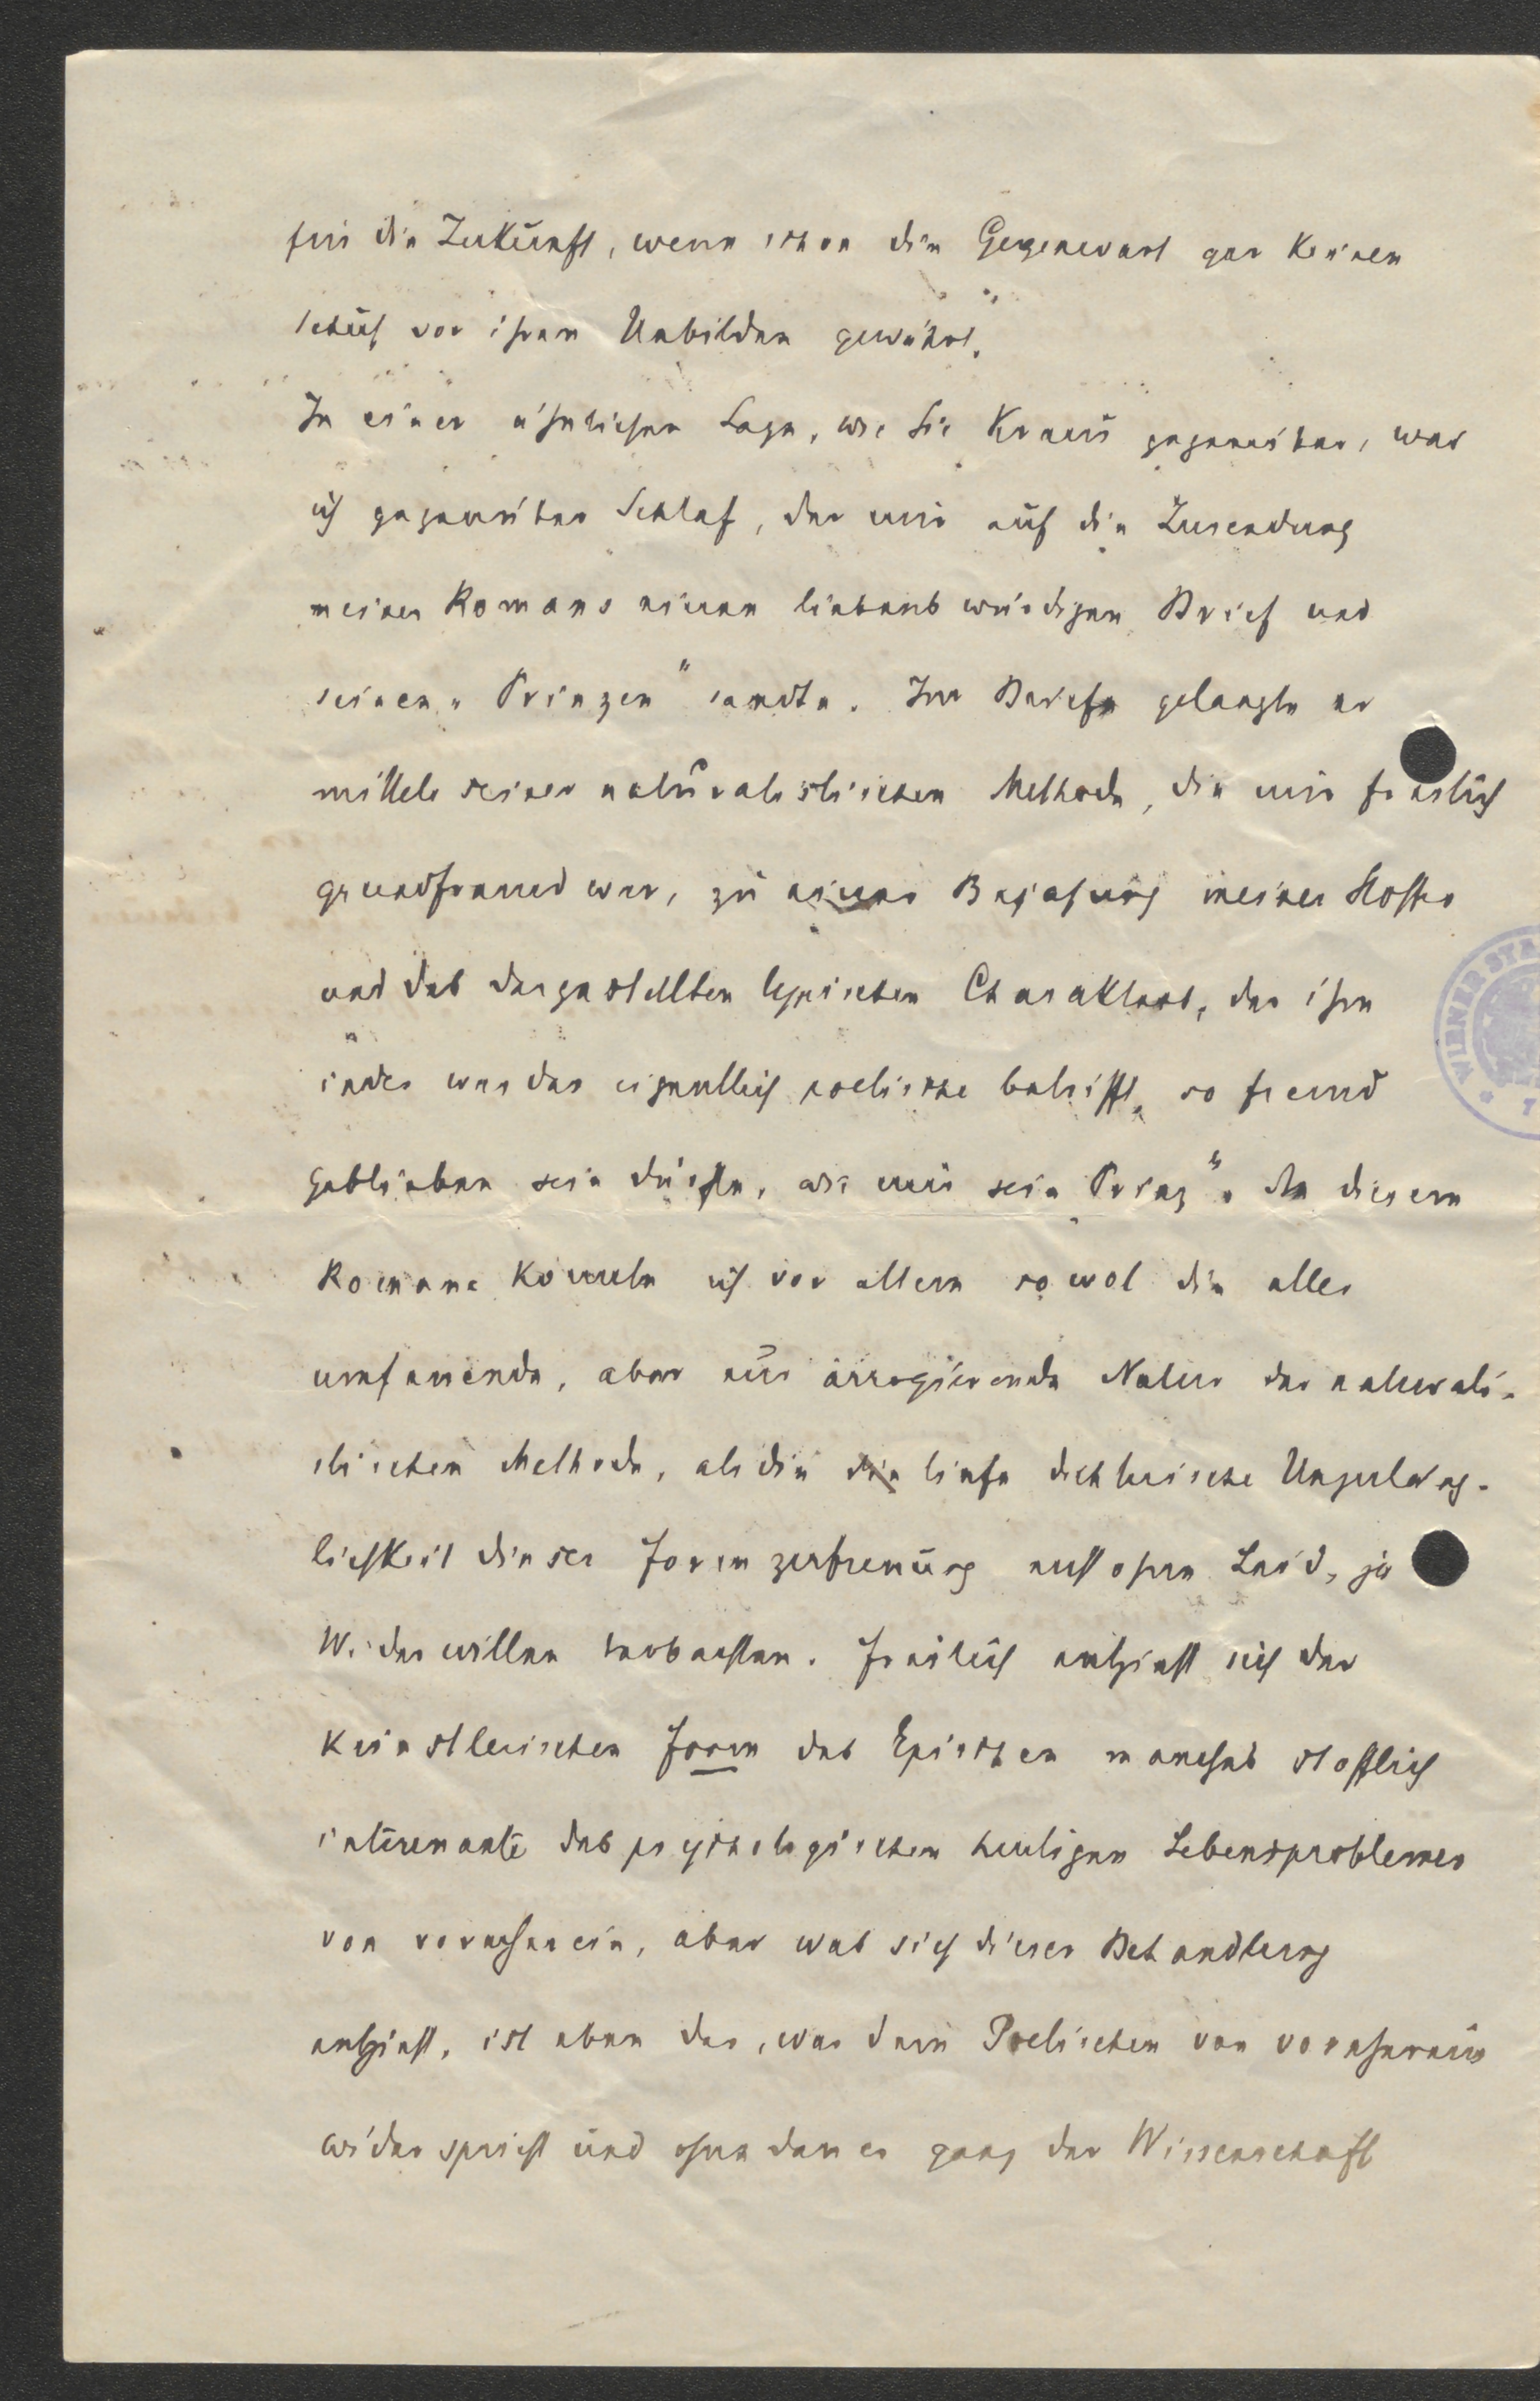 für die Zukunft, wenn schon die Gegenwart gar keinen
schutz vor ihren Unbilden gewährt."
In einer ähnlichen Lage, wie Sie Kraus gegenüber, war
ich gegenüber Schlaf, der mir auf die Zusendung
meines Romans einen liebenswürdigen Brief und
seinen „Prinzen" sandte. Im Briefe gelangte er
mittels seiner naturalistischen Methode, die mir freilich
grundfremd war, zu einer Bejahung meines Stoffes
und des dargestellten typischen Charakters, der ihm
indes was das eigentlich poetische betrifft, so fremd
geblieben sein dürfte, wie mir sein Prinz". An diesem
Romane konnte ich vor allem sowol die alles
umfassende, aber nur arrogierende Natur der naturali-
stischen Methode, als die tiefe dichterische Unzuläng-
lichkeit dieser Formzertrennung nicht ohne Leid, ja
Widerwillen beobachten. Freilich entzieht sich der
künstlerischen Form des Epischen manches stofflich
interessante des psychologischen heutigen Lebensproblemes
von vornherein, aber was sich dieser Behandlung
entzieht, ist eben das, was dem Poetischen von vornherein
widerspricht und ohne dass es ganz der Wissenschaft
WIENER STA